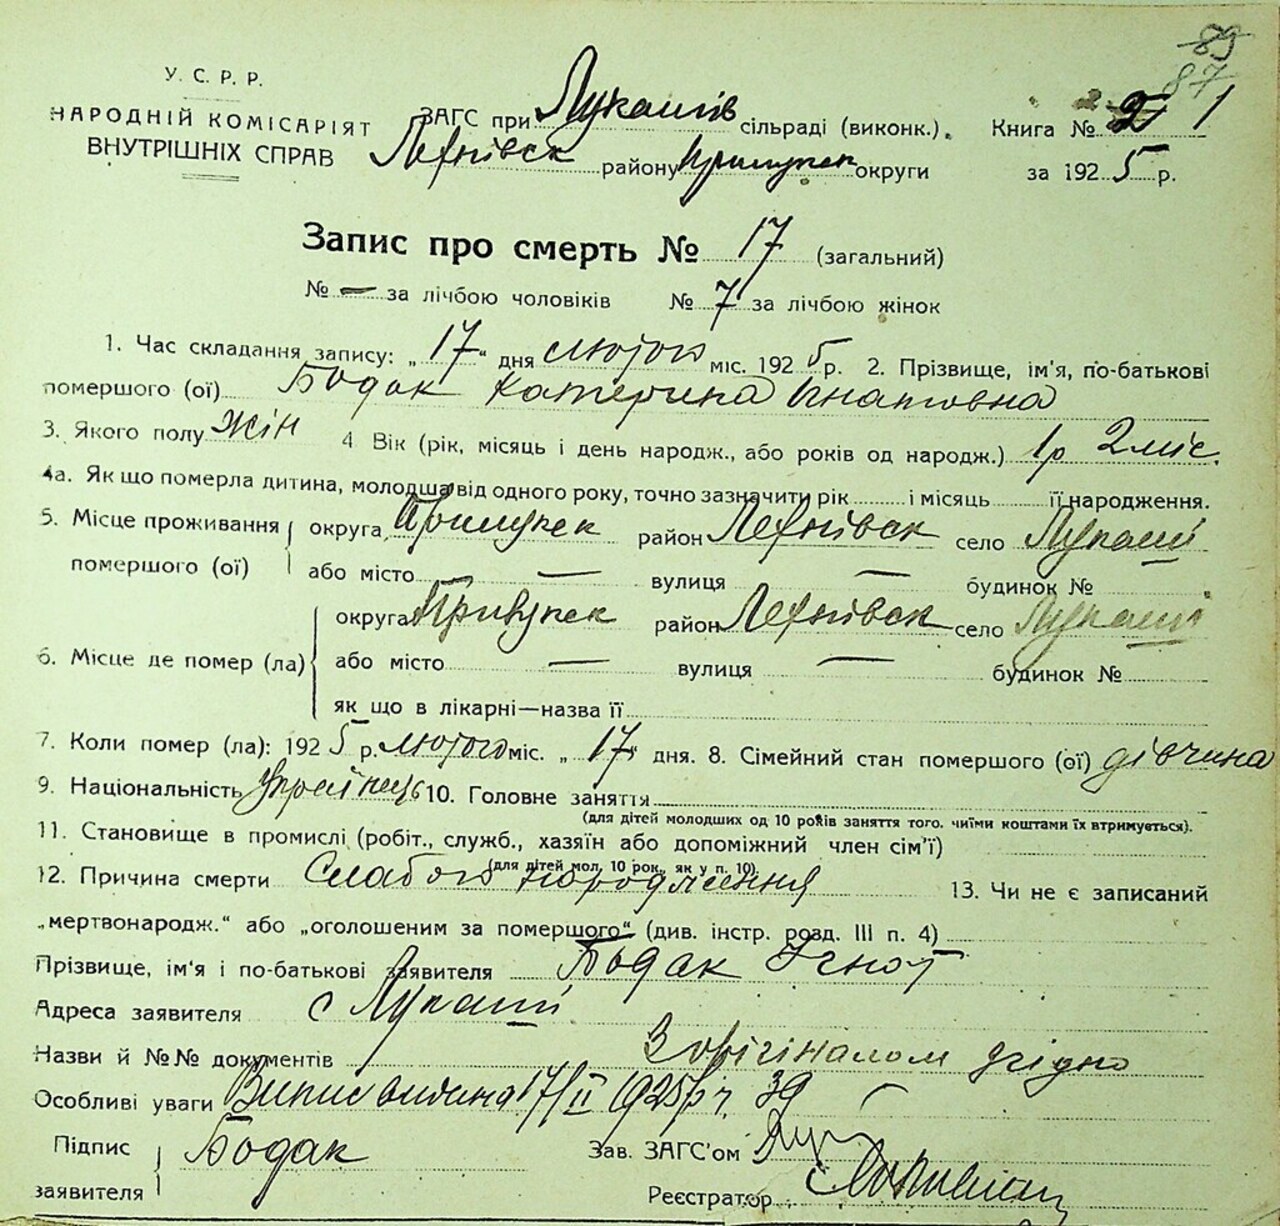 89
87
У. С. Р. Р.
НАРОДНІЙ КОМІСАРІЯТ
ВНУТРІШНІХ СПРАВ
ЗАГС при Лукашів сільраді (виконк.). Книга № 1
району Прилуцьк округи за 1925 р.
Запис про смерть № 17 (загальний)
№ — за лічбою чоловіків № 7 за лічбою жінок
1. Час складання запису: „17“ дня лютого міс. 1925 р. 2. Прізвище, ім'я, по-батькові
помершого (ої) Бодак Катерина Ігнатовна
3. Якого полу жін 4 Вік (рік, місяць і день народж., або років од народж.) 1р 2 міс.
4а. Як що померла дитина, молодша від одного року, точно зазначити рік і місяць її народження.
5. Місце проживання помершого (ої) округа Прилуцьк район село Лукаші
або місто — вулиця — будинок №
6. Місце де помер (ла) округа Прилуцьк район село Лукаші
або місто — вулиця — будинок №
як що в лікарні—назва її
7. Коли помер (ла): 1925 р. лютого міс. „17“ дня. 8. Сімейний стан помершого (ої) дівчина
9. Національність Українець 10. Головне заняття
(для дітей молодших од 10 років заняття того, чиїми коштами їх втримується).
11. Становище в промислі (робіт., служб., хазяїн або допоміжний член сім'ї)
(для дітей мол. 10 рок., як у п. 10)
12. Причина смерти Слабого народження 13. Чи не є записаний
„мертвонародж.“ або „оголошеним за помершого“ (див. інстр. розд. III п. 4)
Прізвище, ім'я і по-батькові заявителя Бодак Ігнот
Адреса заявителя с Лукаші
Назви й №№ документів З орігіналом згідно
Особливі уваги Випис видана 17/II 1925 р ч. 39
Підпис заявителя Бодак Зав. ЗАГС'ом
Реєстратор